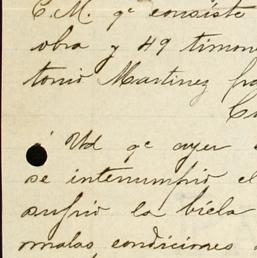 C.M. qe consiste
obra y 49 timon
tonio Martinez fra
Cu
á Ud qe ayer
se interrumpió el
sufrió la biela
malas condiciones